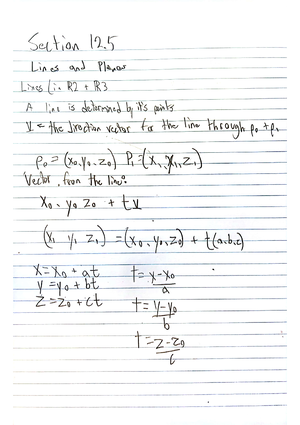 Section 12.5
Lines and Planes
Lines (in R2 + R3
A line is determined by it's points
V = the direction vector for the line through p₀ + p₁
p₀ = (x₀, y₀, z₀) P₁ = (x₁, y₁, z₁)
Vector from the line:
x₀, y₀ z₀ + tv
(x₁ y₁ z₁) = (x₀, y₀, z₀) + t(a,b,c)
x = x₀ + at t = x-x₀/a
y = y₀ + bt t = y-y₀/b
z = z₀ + ct t = z-z₀/c